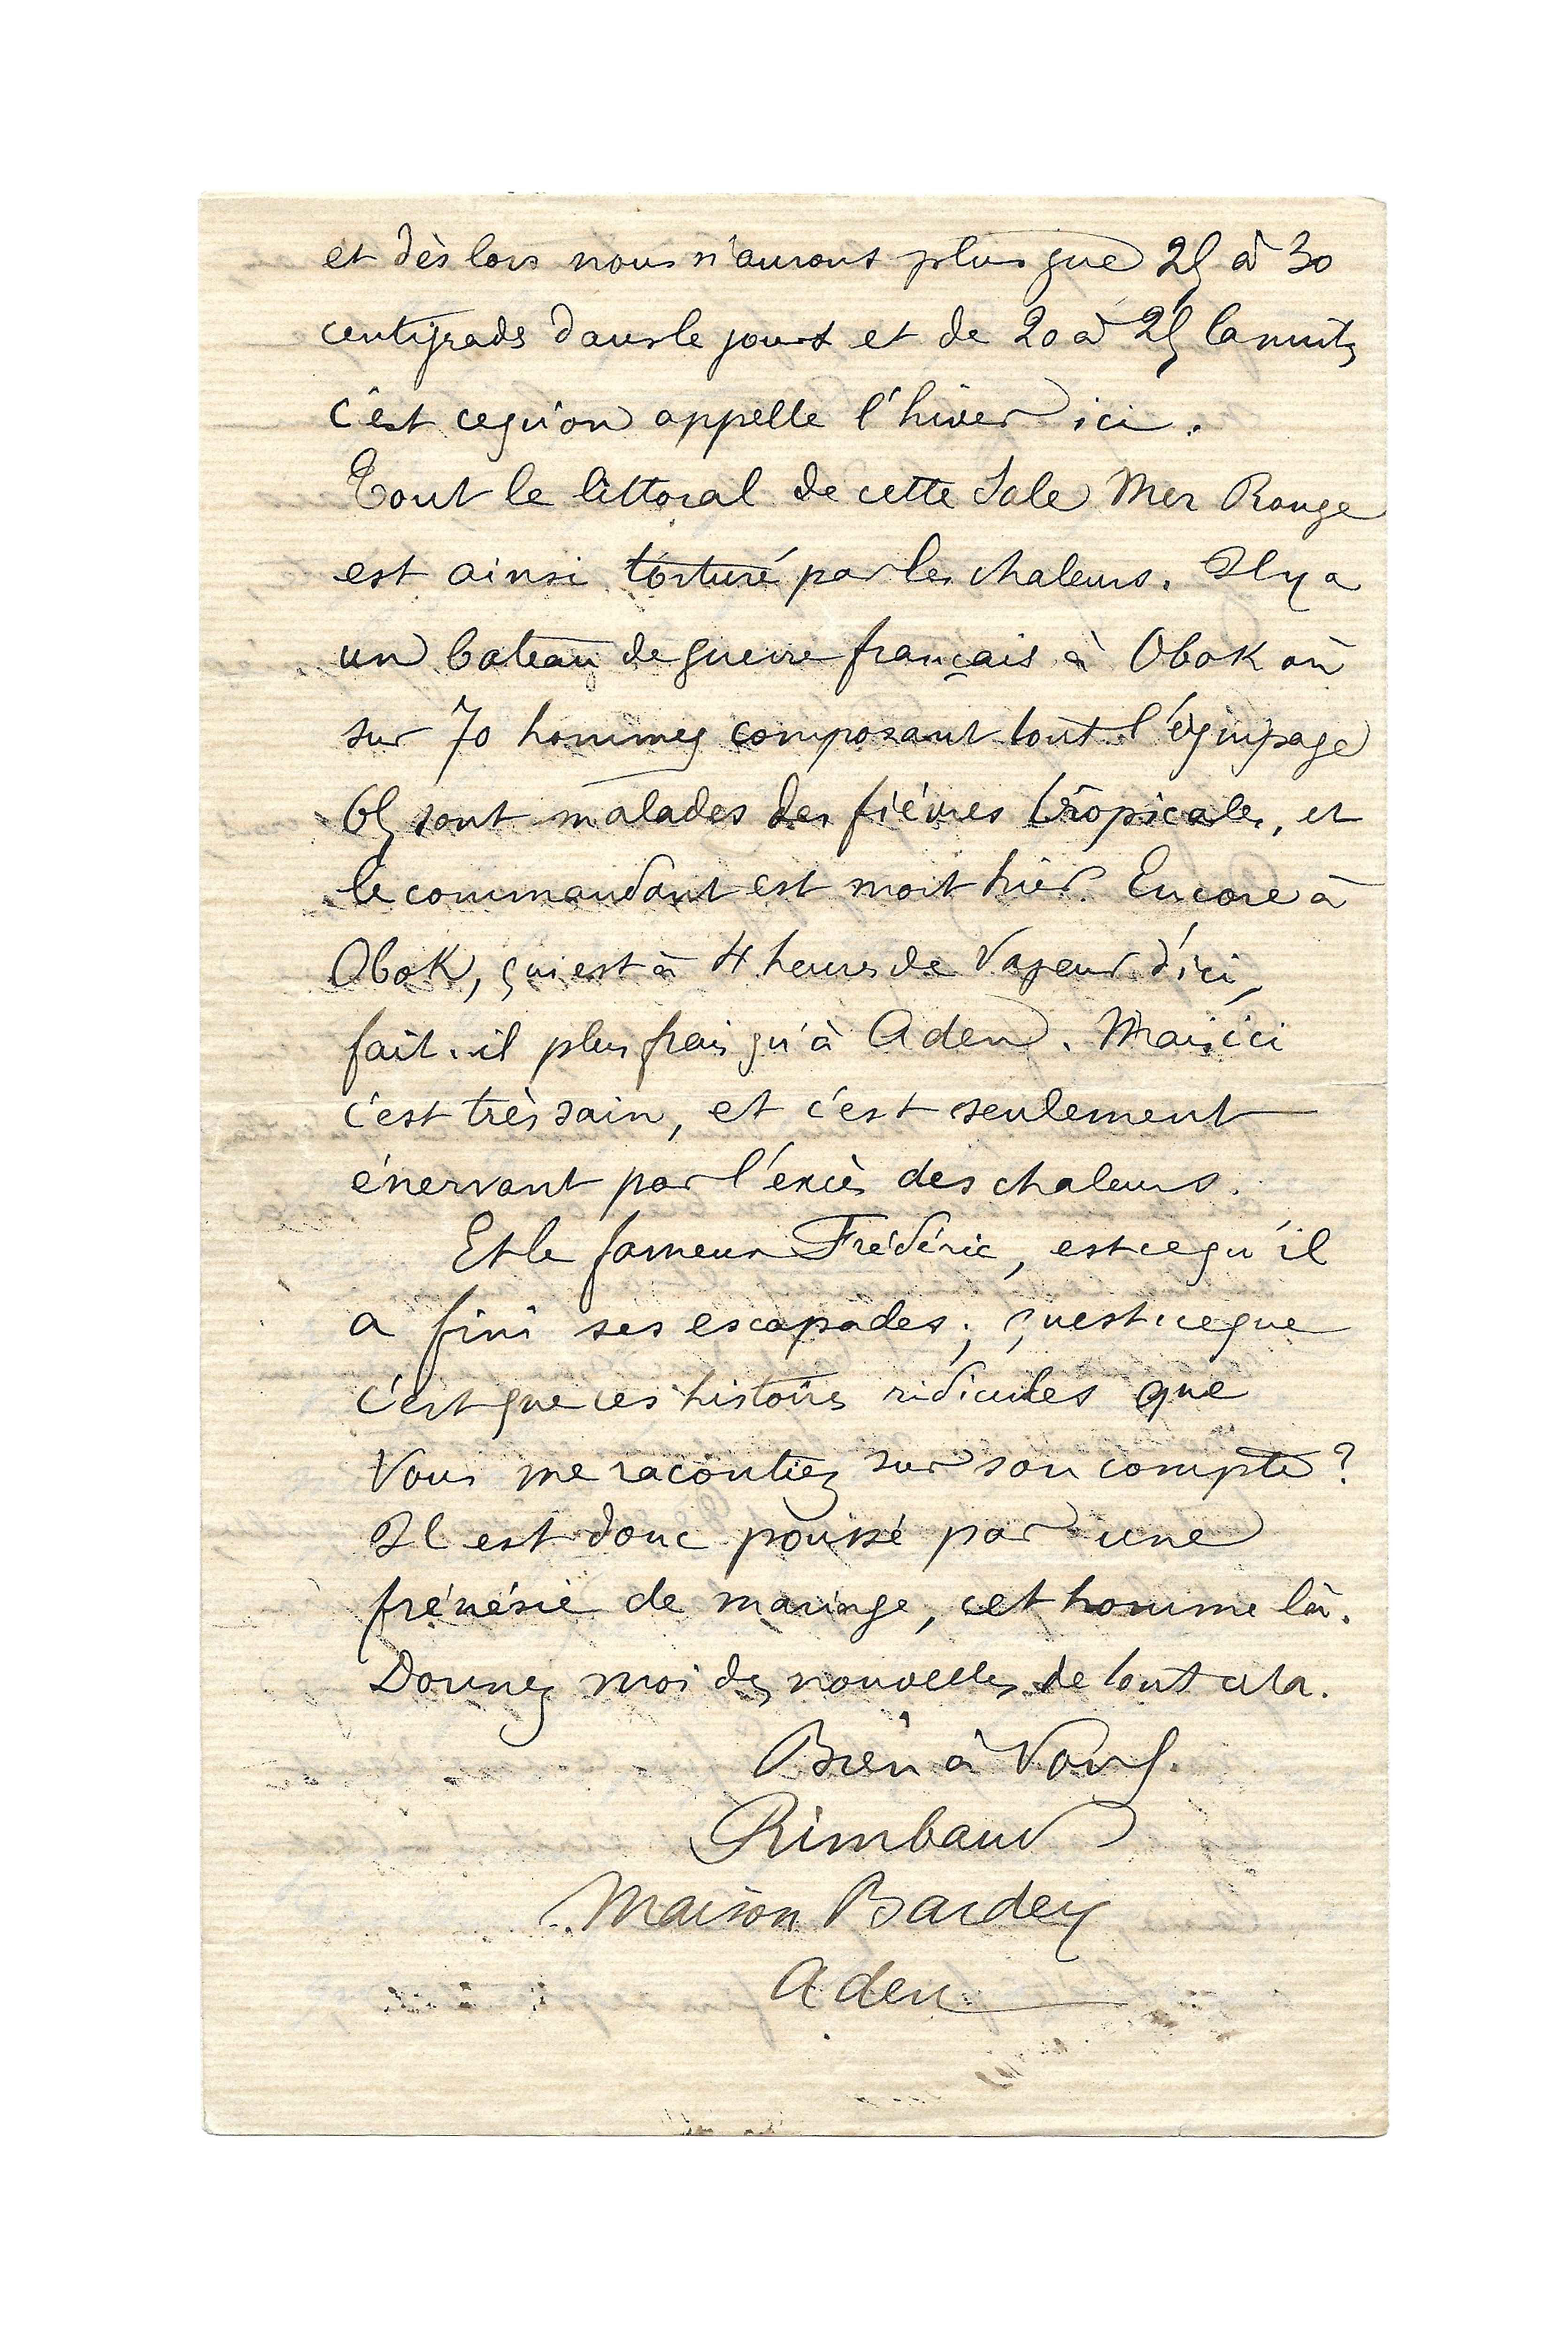 et dès lors nous n'aurons plus que 25 à 30
centigrads dans le jours et de 20 à 25 la nuit,
c'est ce qu'on appelle l'hiver ici.
Tout le littoral de cette Sale Mer Rouge
est ainsi torturé par les chaleurs. Il y a
un bateau de guerre français à Obok où
sur 70 hommes composant tout l'équipage
65 sont malades des fièvres tropicales, et
le commandant est mort hier. Encore à
Obok, qui est à 4 heures de vapeur d'ici,
fait-il plus frais qu'à Aden. Mais ici
c'est très sain, et c'est seulement
énervant par l'excès des chaleurs.
Et le fameux Frédéric, est ce qu'il
a fini ses escapades; qu'est ce que
c'est que ces histoires ridicules que
Vous me racontiez sur son compte?
Il est donc poussé par une
frénésie de mariage, cet homme là.
Donnez moi des nouvelles de tout cela.
Bien à Vous.
Rimbaud
Maison Bardey
Aden